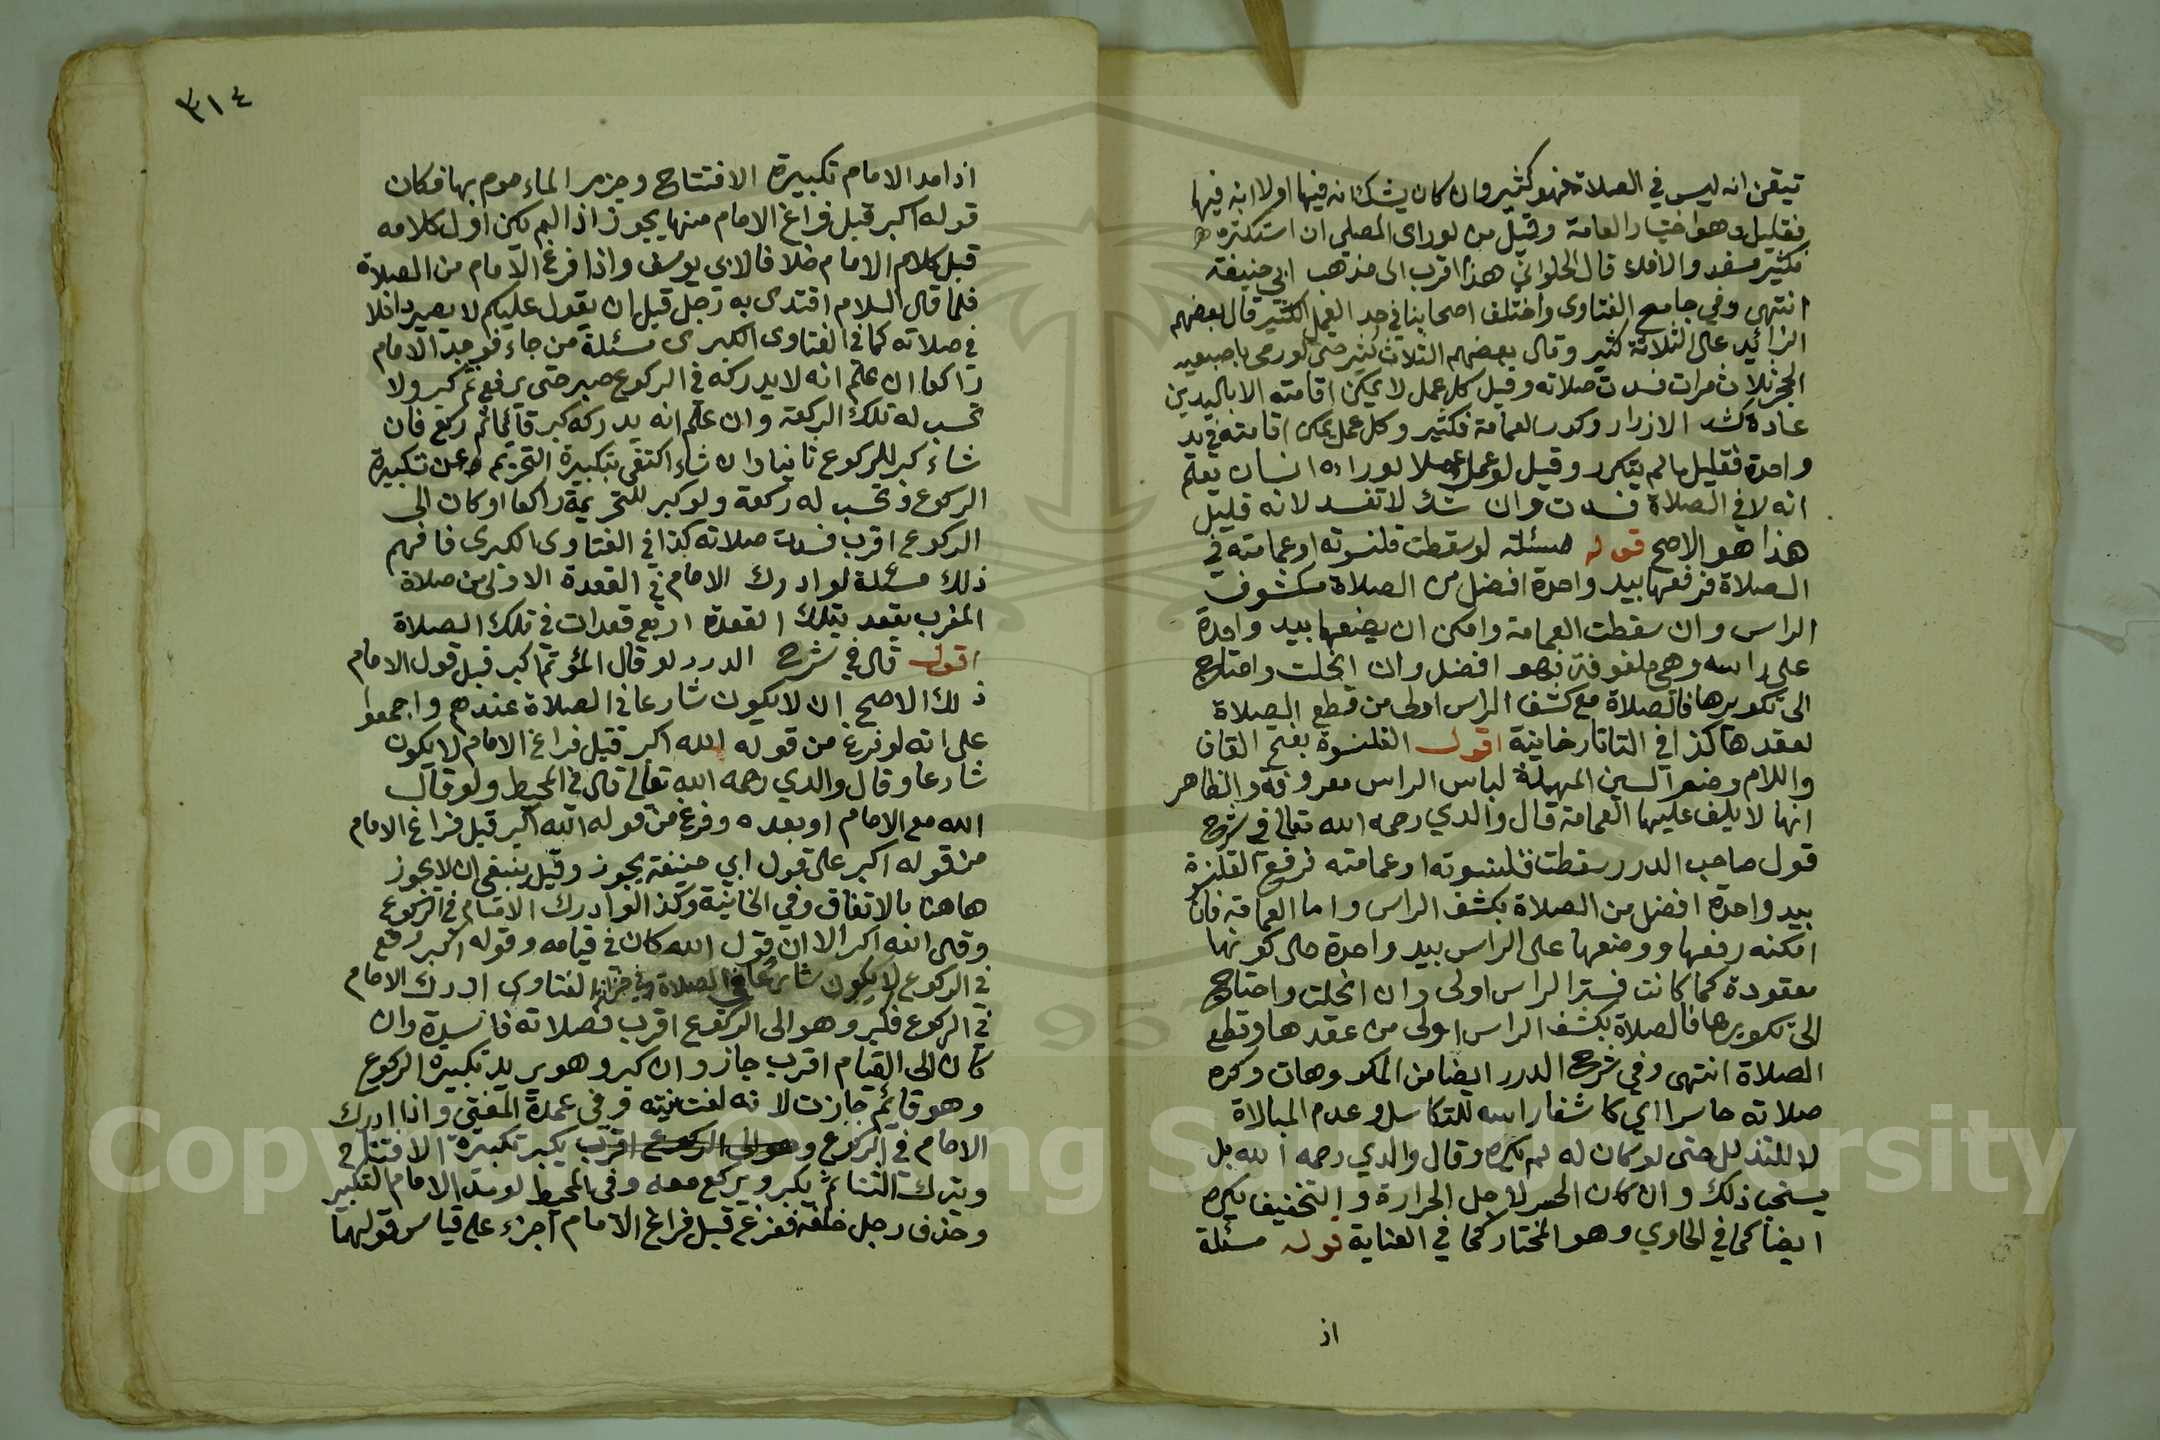 تيقن انه ليس في الصلاة فهو كثير وان كان يشك انه فيها او لا انه فيها
فقليل وهو اختيار العامة وقيل من لو راى المصلى ان استكثره
فكثير مفسد والا فلا قال الحلواني هذا اقرب الى مذهب ابي حنيفة
انتهى وفي جامع الفتاوى واختلف اصحابنا في حد العمل الكثير قال بعضهم
الزائد على الثلاثة كثير وقال بعضهم الثلاث كثير حتى لو رمى باصبعيه
الحجر ثلاث مرات فسدت صلاته وقيل كل عمل لا يمكن اقامته الا باليدين
عادة كشد الازرار وكور العمامة فكثير وكل عمل يمكن اقامته في يد
واحدة فقليل ما لم يتكرر وقيل لو عمل عملا لو راه انسان تعلم
انه لا في الصلاة فسدت وان شك لا تفسد لانه قليل
هذا هو الاصح قوله مسئلة لو سقطت قلنسوته او عمامته في
الصلاة فرفعها بيد واحدة افضل من الصلاة مكشوف
الراس وان سقطت العمامة وامكن ان يضعها بيد واحدة
على راسه وهي ملفوفة فهو افضل وان انحلت واحتاج
الى تكويرها فالصلاة مع كشف الراس اولى من قطع الصلاة
لعقدها كذا في التاتارخانية اقول القلنسوة بفتح القاف
واللام وضم السين المهملة لباس الراس معروفة والظاهر
انها لا يلف عليها العمامة قال والدي رحمه الله تعالى في شرح
قول صاحب الدرر سقطت قلنسوته او عمامته فرفع القلنسوة
بيد واحدة افضل من الصلاة بكشف الراس واما العمامة فان
امكنه رفعها ووضعها على الراس بيد واحدة حال كونها
معقودة كما كانت فستر الراس اولى وان انحلت واحتاج
الى تكويرها فالصلاة بكشف الراس اولى من عقدها وقطع
الصلاة انتهى وفي شرح الدرر ايضا من المكروهات وكره
صلاته حاسرا اي كاشفا راسه للتكاسل وعدم المبالاة
لا للتذلل حتى لو كان له لم يكره وقال والدي رحمه الله بل
يستحب ذلك وان كان الحسر لاجل الحرارة والتخفيف يكره
ايضا كما في الحاوي وهو المختار كما في العناية قوله مسئلة
اذ
٣١٤
اذا مد الامام تكبيرة الافتتاح وجزم الماءموم بها فكان
قوله اكبر قبل فراغ الامام منها يجوز اذا لم تكن اول كلامه
قبل كلام الامام خلافا لابي يوسف واذا فرغ الامام من الصلاة
فلما قال السلام اقتدى به رجل قبل ان يقول عليكم لا يصير داخلا
في صلاته كما في الفتاوى الكبرى مسئلة من جاء فوجد الامام
راكعا ان علم انه لا يدركه في الركوع صبر حتى يرفع ثم كبر ولا
تحسب له تلك الركعة وان علم انه يدركه كبر قائما ثم ركع فان
شاء كبر للركوع ثانيا وان شاء اكتفى بتكبيرة التحريم عن تكبيرة
الركوع وتحسب له ركعة ولو كبر للتحريمة راكعا او كان الى
الركوع اقرب فسدت صلاته كذا في الفتاوى الكبرى فافهم
ذلك مسئلة لو ادرك الامام في القعدة الاولى من صلاة
المغرب يقعد بتلك القعدة اربع قعدات في تلك الصلاة
اقول قال في شرح الدرر لو قال المؤتم اكبر قبل قول الامام
ذلك الاصح ان لا يكون شارعا في الصلاة عندهم واجمعوا
على انه لو فرغ من قوله الله اكبر قبل فراغ الامام لا يكون
شارعا وقال والدي رحمه الله تعالى قال في المحيط ولو قال
الله مع الامام او بعده وفرغ من قوله الله اكبر قبل فراغ الامام
من قوله اكبر على قول ابي حنيفة يجوز وقيل ينبغي ان لا يجوز
هاهنا بالاتفاق وفي الخانية وكذا لو ادرك الامام في الركوع
وقال الله اكبر الا ان قول الله كان في قيامه وقوله اكبر وقع
في الركوع لا يكون شارعا في الصلاة وفي خزانة الفتاوى ادرك الامام
في الركوع فكبر وهو الى الركوع اقرب فصلاته فاسدة وان
كان الى القيام اقرب جاز وان كبر وهو يريد تكبيرة الركوع
وهو قائم جازت لانه لغت نيته وفي عمدة المفتي واذا ادرك
الامام في الركوع وهو الى الركوع اقرب يكبر تكبيرة الافتتاح
ويترك الثناء ثم يكبر ويركع معه وفي المحيط لو مد الامام التكبير
وحذف رجل خلفه ففرغ قبل فراغ الامام اجزء على قياس قولهما
Copyright © King Saud University